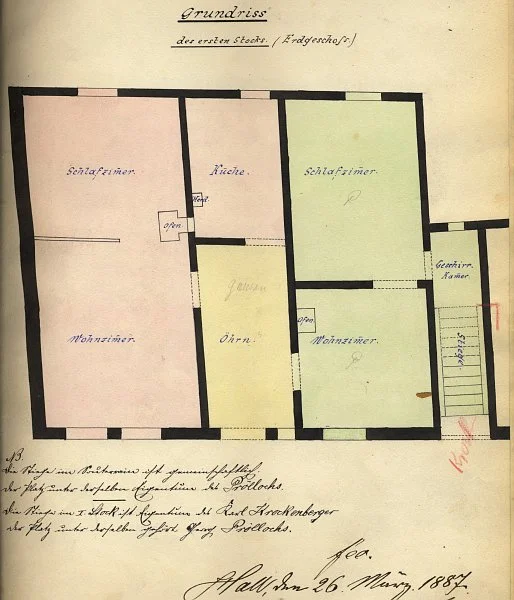 Grundriss
des ersten Stocks. (Erdgeschoss.)
Schlafzimer.
Küche.
Schlafzimer.
Herd.
Ofen
Geschirr
Kamer.
Ofen.
Wohnzimer.
Öhrn.
Wohnzimer.
Stiege.
NB.
Die Stiege im Souterrain ist gemeinschaftlich;
der Platz unter derselben Eigentum des Pröllochs.
Die Stiege im I. Stock ist Eigentum des Karl Krockenberger
der Platz unter derselben gehört Georg Pröllochs.
Hall, den 26. März. 1887.